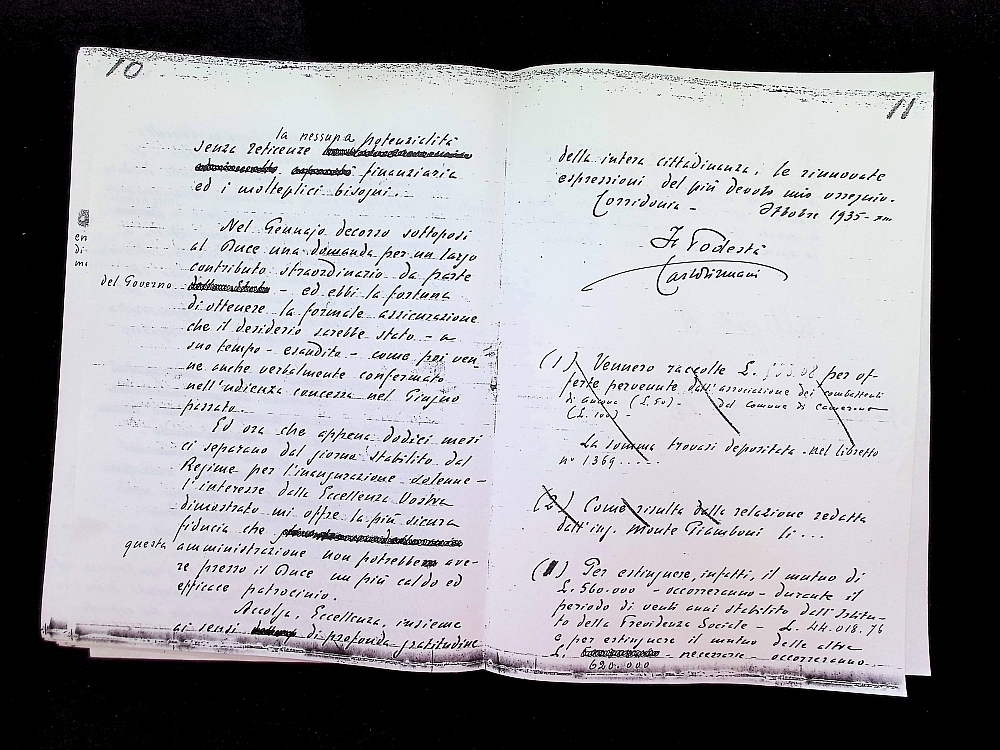 10
la nessuna potenzialità
senza reticenze
finanziaria
ed i molteplici bisogni.
Nel Gennajo decorso sottoposi
al Duce una domanda per un largo
contributo straordinario da parte
del Governo - ed ebbi la fortuna
di ottenere la formale assicurazione
che il desiderio sarebbe stato - a
suo tempo - esaudito - come poi ven-
ne anche verbalmente confermato
nell'udienza concessa nel Giugno
passato.
Ed ora che appena dodici mesi
ci separano dal giorno stabilito dal
Regime per l'inaugurazione solenne -
l'interesse dalla Eccellenza Vostra
dimostrato mi offre la più sicura
fiducia che
questa amministrazione non potrebbe ave-
re presso il Duce un più caldo ed
efficace patrocinio.
Accolga, Eccellenza, insieme
ai sensi di profonda gratitudine
en
di
mi
11
della intera cittadinanza, le rinnovate
espressioni del più devoto mio ossequio.
Corridonia - Ottobre 1935 - XIII
Il Podestà
(1) Vennero raccolte £. per of-
ferte pervenute dall'associazione dei combattenti
di Ancona (£. 50) - dal comune di Camerino
(£. 100) -
La somma trovasi depositata nel libretto
n° 1369.....
(2) Come risulta dalla relazione redatta
dall'ing. Monte Piamboni li...
(1) Per estinguere, infatti, il mutuo di
£. 560.000 - occorreranno - durante il
periodo di venti anni stabilito dall'Istitu-
to della Previdenza Sociale - £. 44.018.76
e per estinguere il mutuo delle altre
£. necessarie - occorreranno
620.000